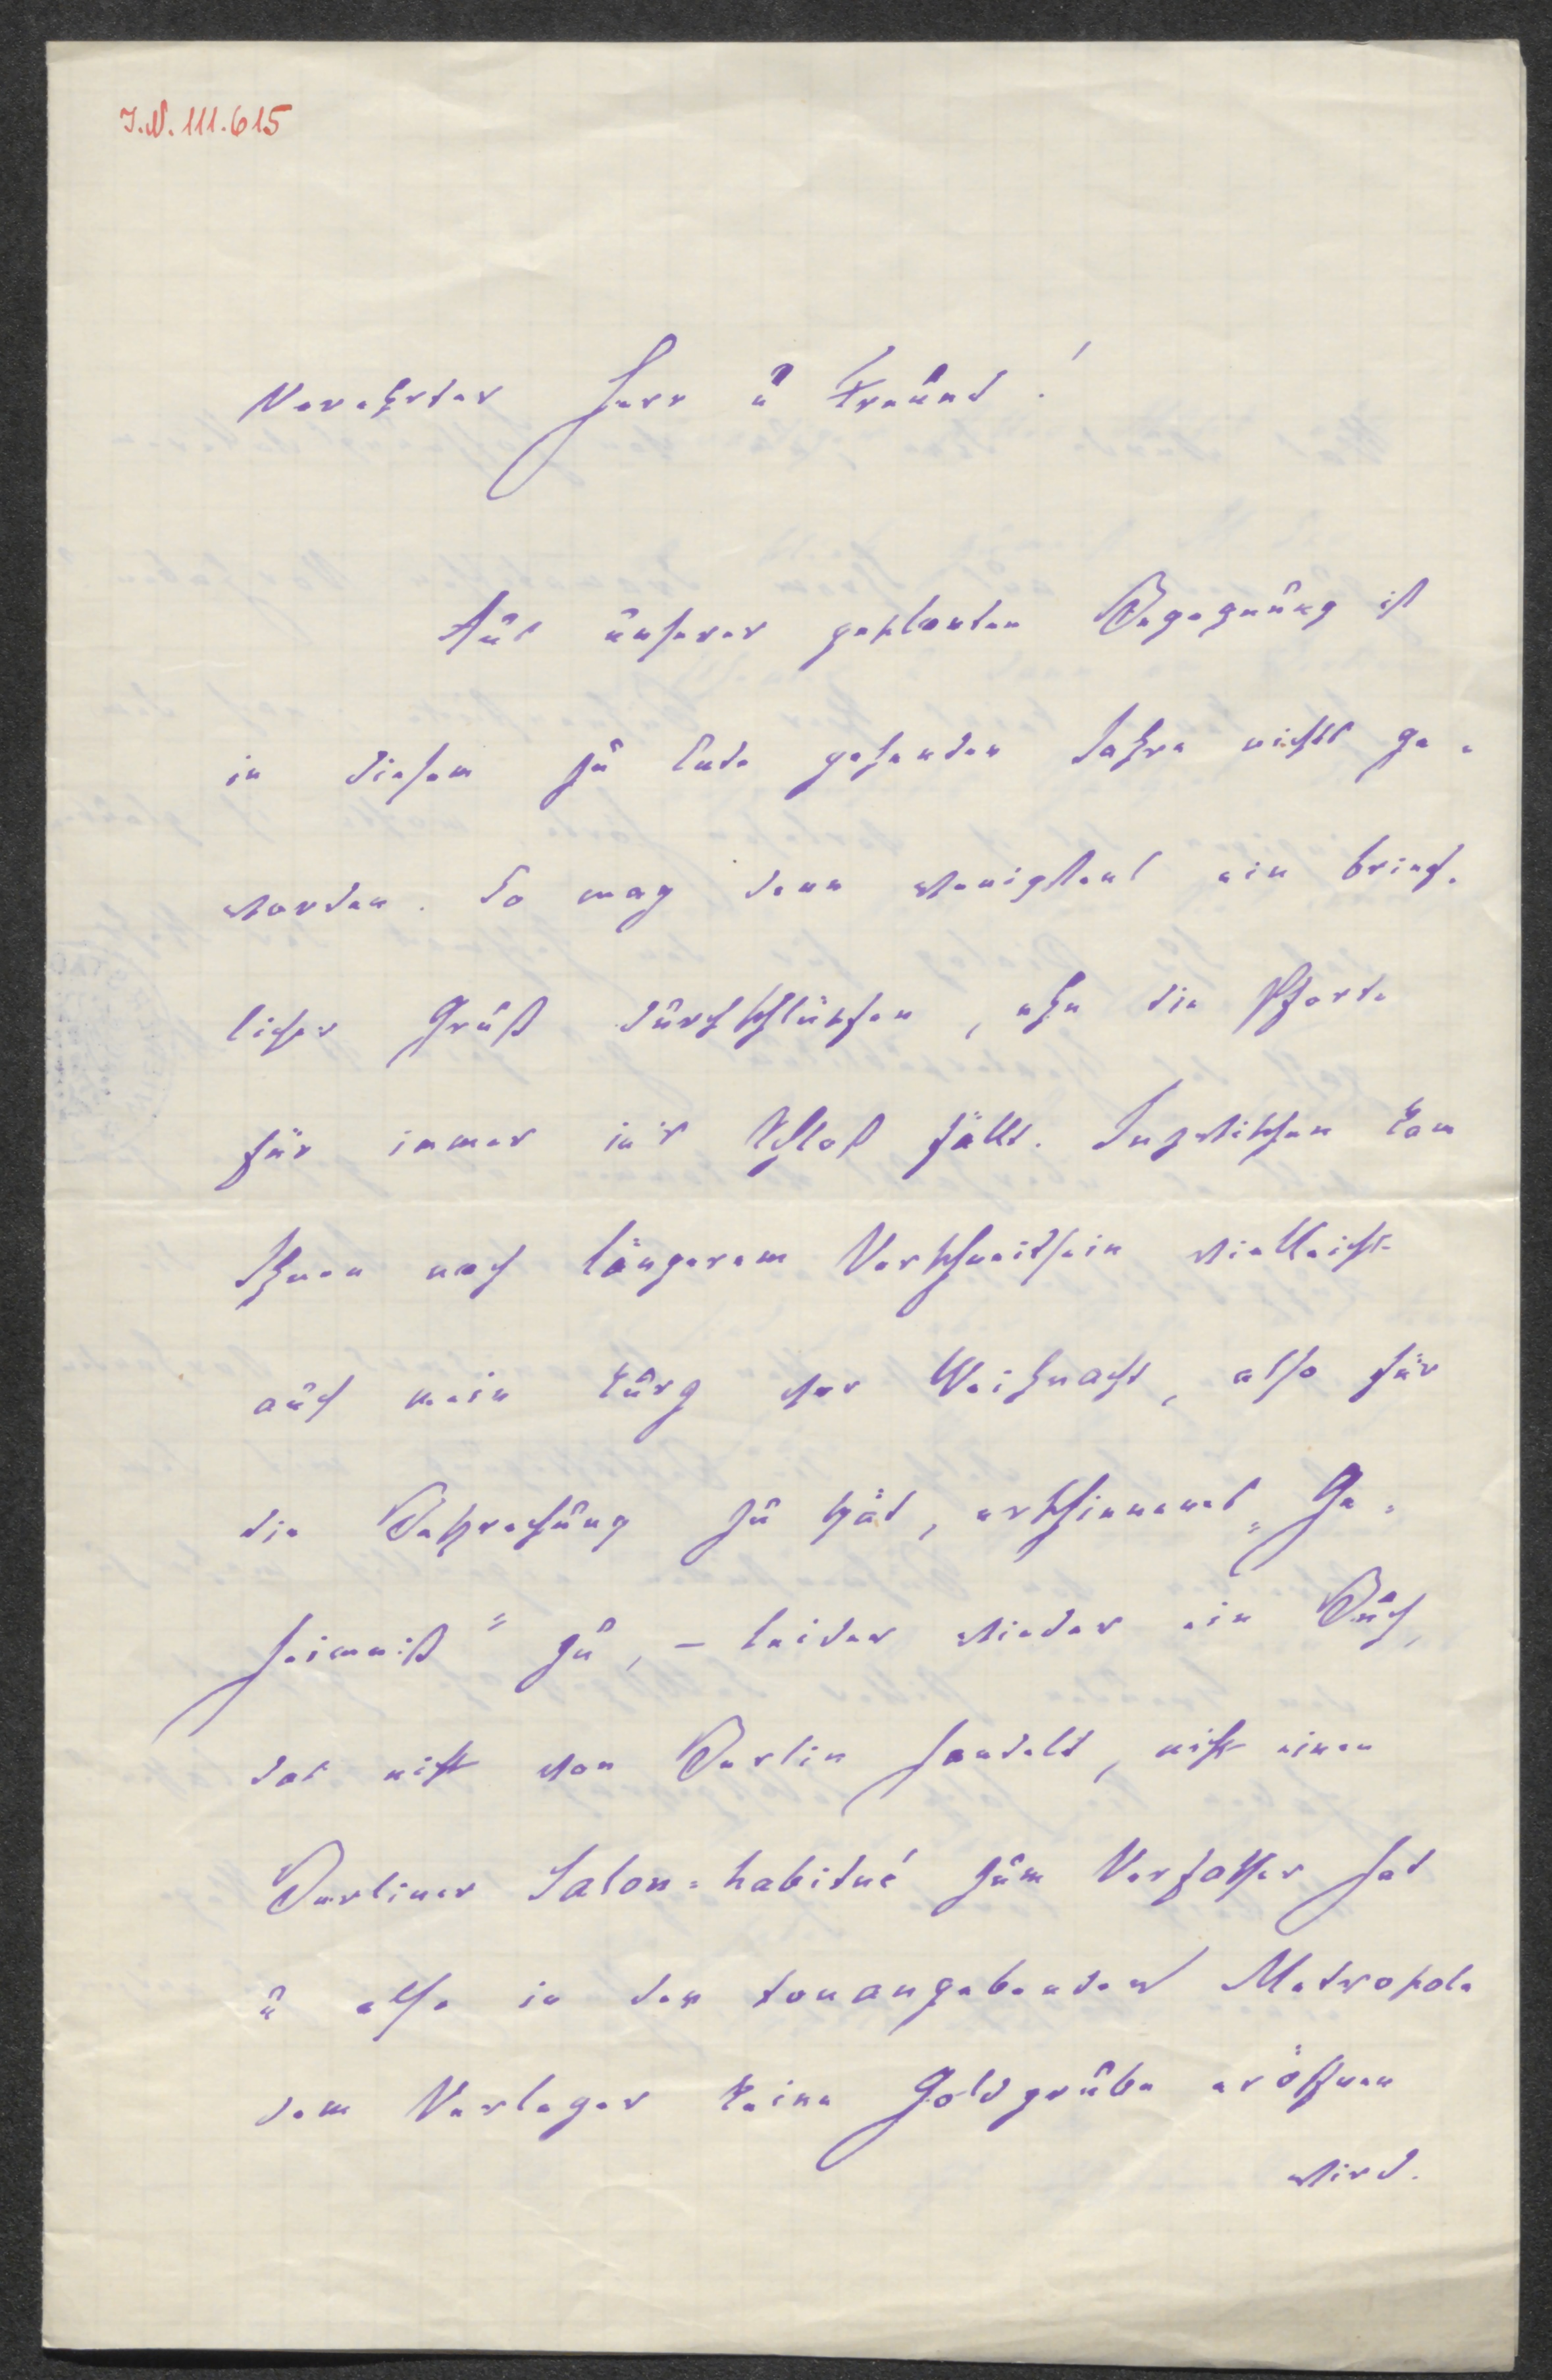 I.N. 111.615
Verehrter Herr u Freund!
Aus unserer geplanten Begegnung ist
in diesem zu Ende gehenden Jahre nichts ge-
worden. So mag denn wenigstens ein brief-
licher Gruß durchschlüpfen, ehe die Pforte
für immer in's Schloß fällt. Inzwischen kam
Ihnen nach längerem Verschneitsein vielleicht
auch mein kurz vor Weihnacht, also für
die Besprechung zu spät, erschienenes „Ge-
heimniß" zu, – leider wieder ein Buch,
das nicht von Berlin handelt, nicht einen
Berliner Salon-habitué zum Verfasser hat
u also in der tonangebenden Metropole
dem Verleger keine Goldgrube eröffnen
wird.